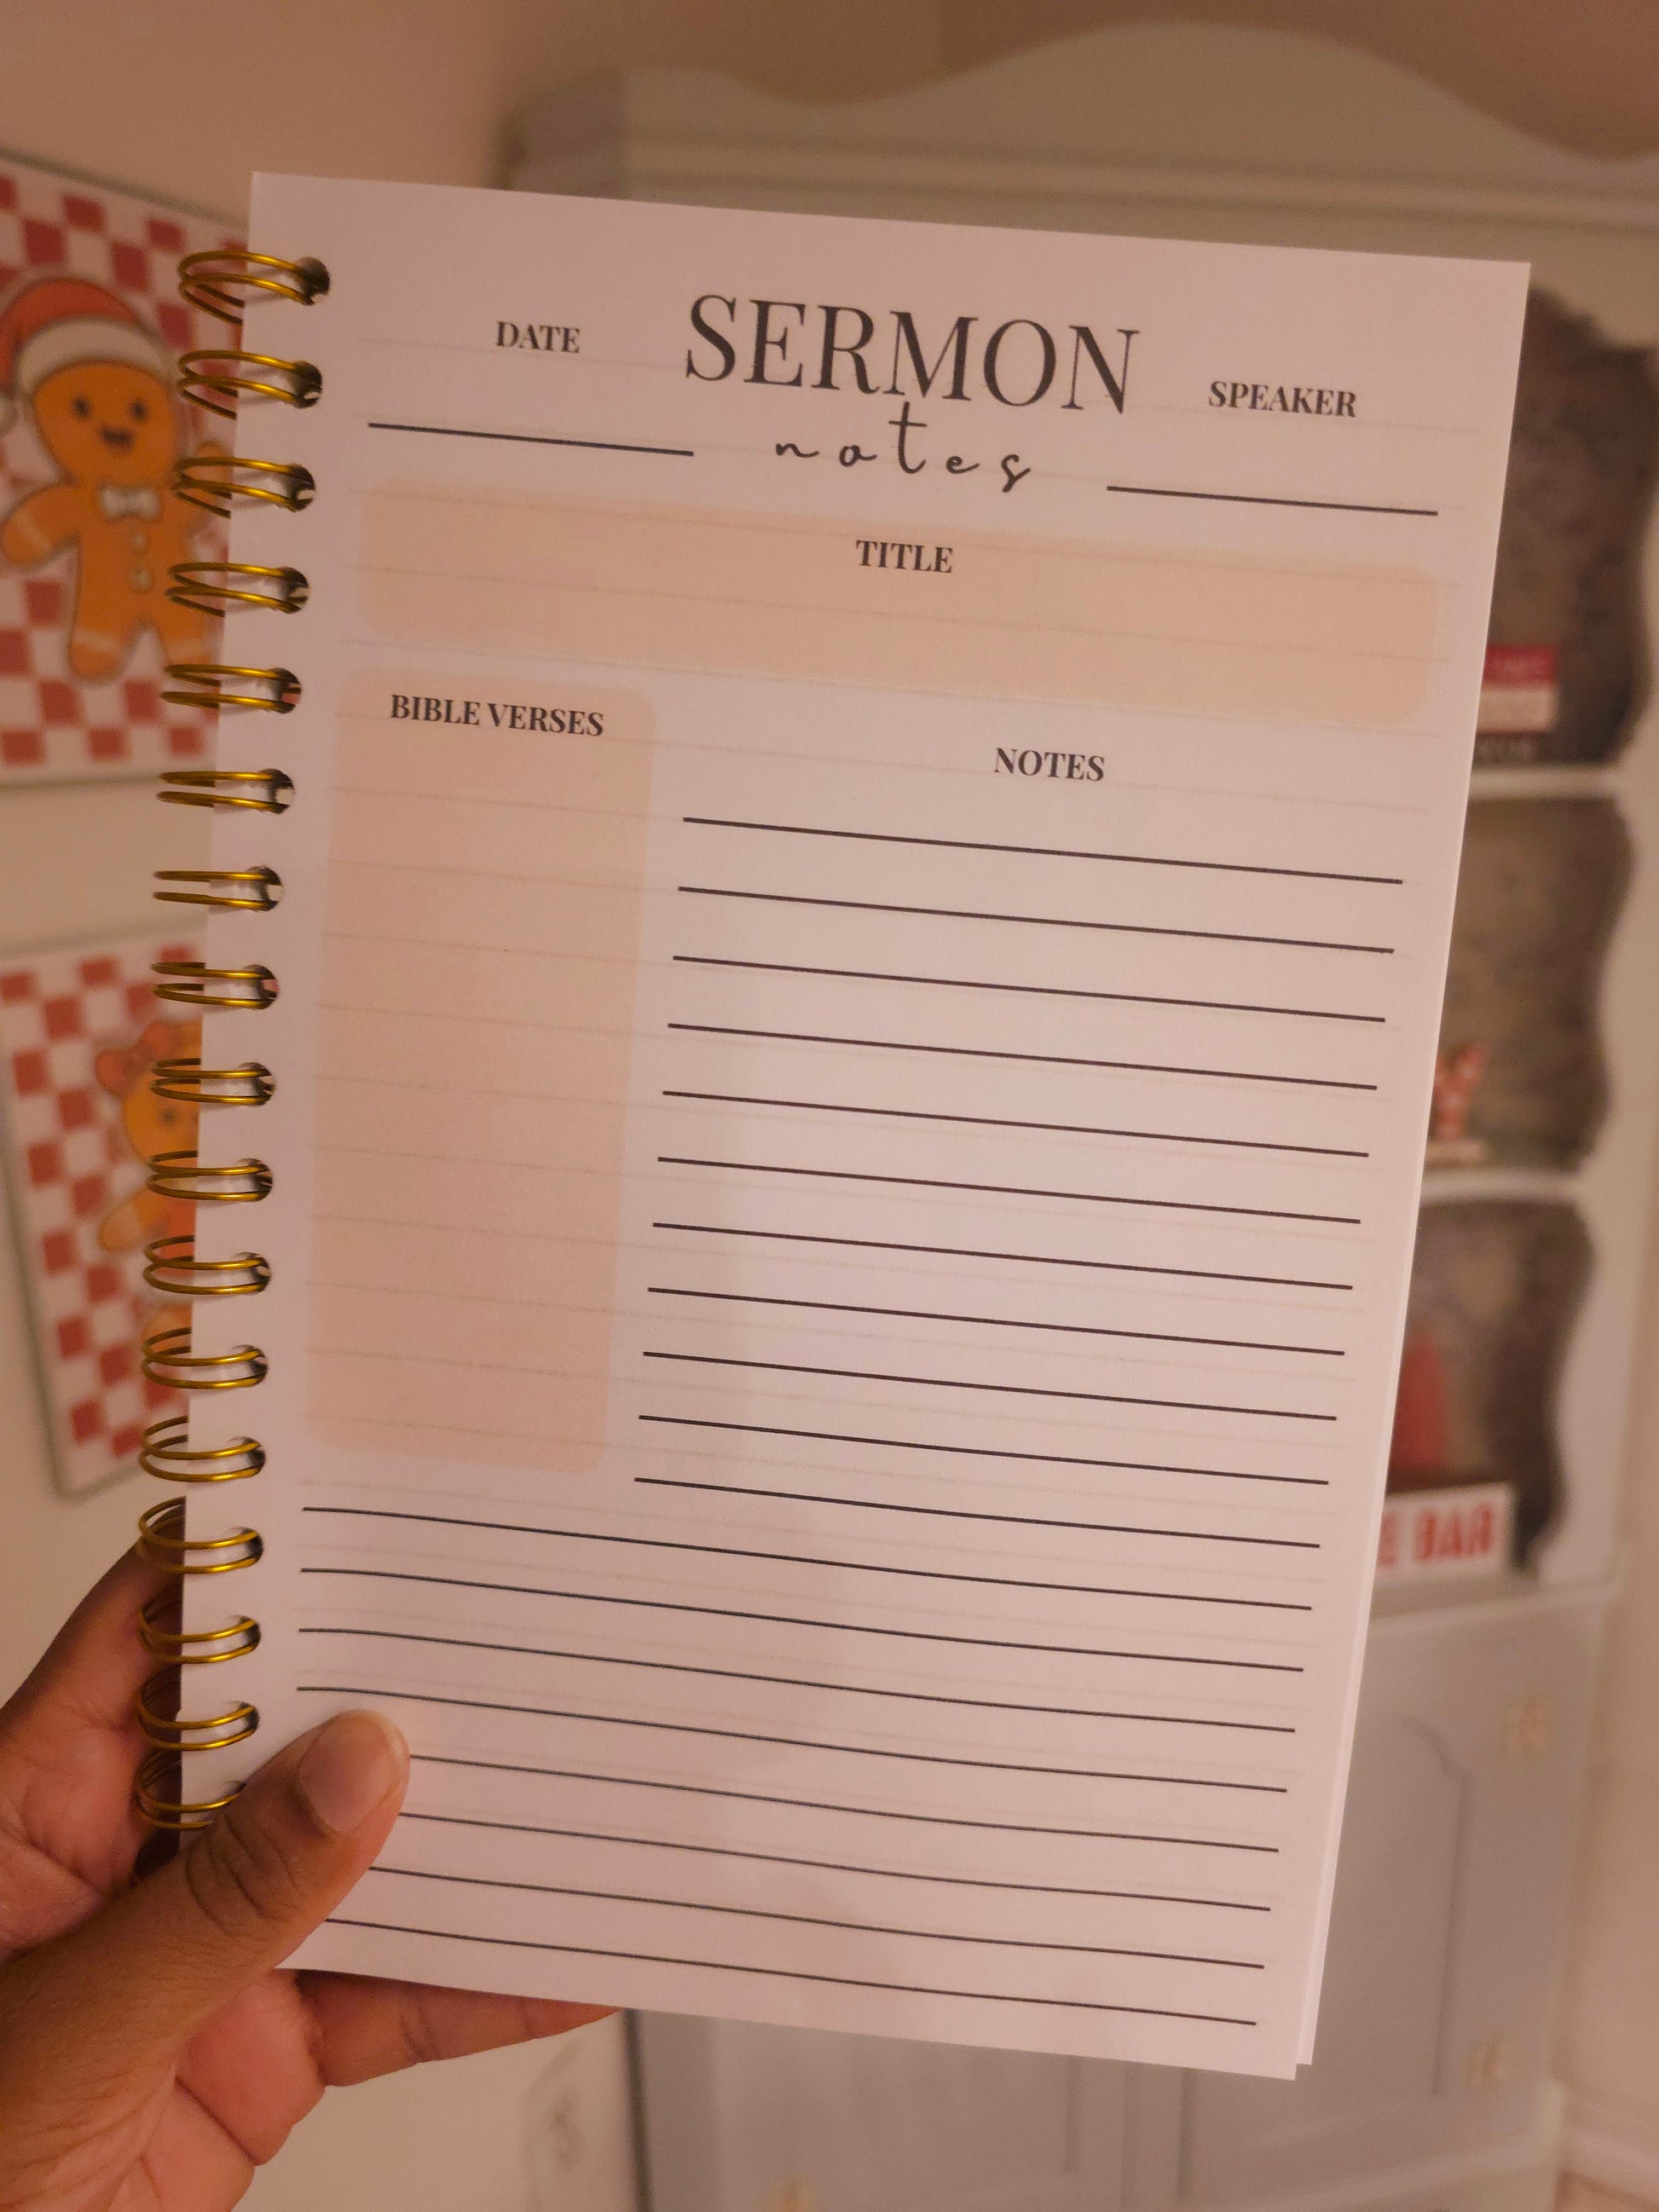 DATE
SERMON
notes
SPEAKER
TITLE
BIBLE VERSES
NOTES
BAR